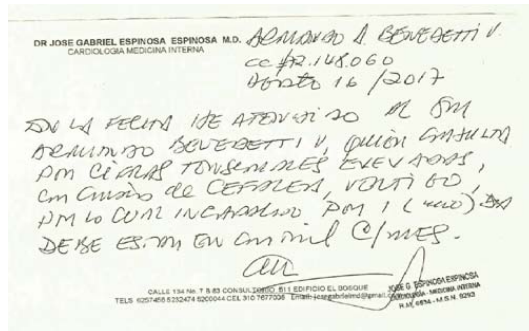 DR JOSE GABRIEL ESPINOSA ESPINOSA M.D.
CARDIOLOGIA MEDICINA INTERNA
ARMANDO A. BENEDETTI V.
CC 72.148.060
Agosto 16 / 2017
EN LA FECHA HE ATENDIDO AL SR
ARMANDO BENEDETTI V, quien consulta
por CIFRAS TENSIONALES ELEVADAS,
con cuadro de CEFALEA, VERTIGO,
por lo cual INCAPACIDAD por 1 (uno) DIA
DEBE ESTAR EN control C/MES.
CALLE 134 No. 7 B 83 CONSULTORIO 611 EDIFICIO EL BOSQUE
TELS 6257456 5232474 5200044 CEL 310 7677036 Email:
JOSE G. ESPINOSA ESPINOSA
CARDIOLOGIA - MEDICINA INTERNA